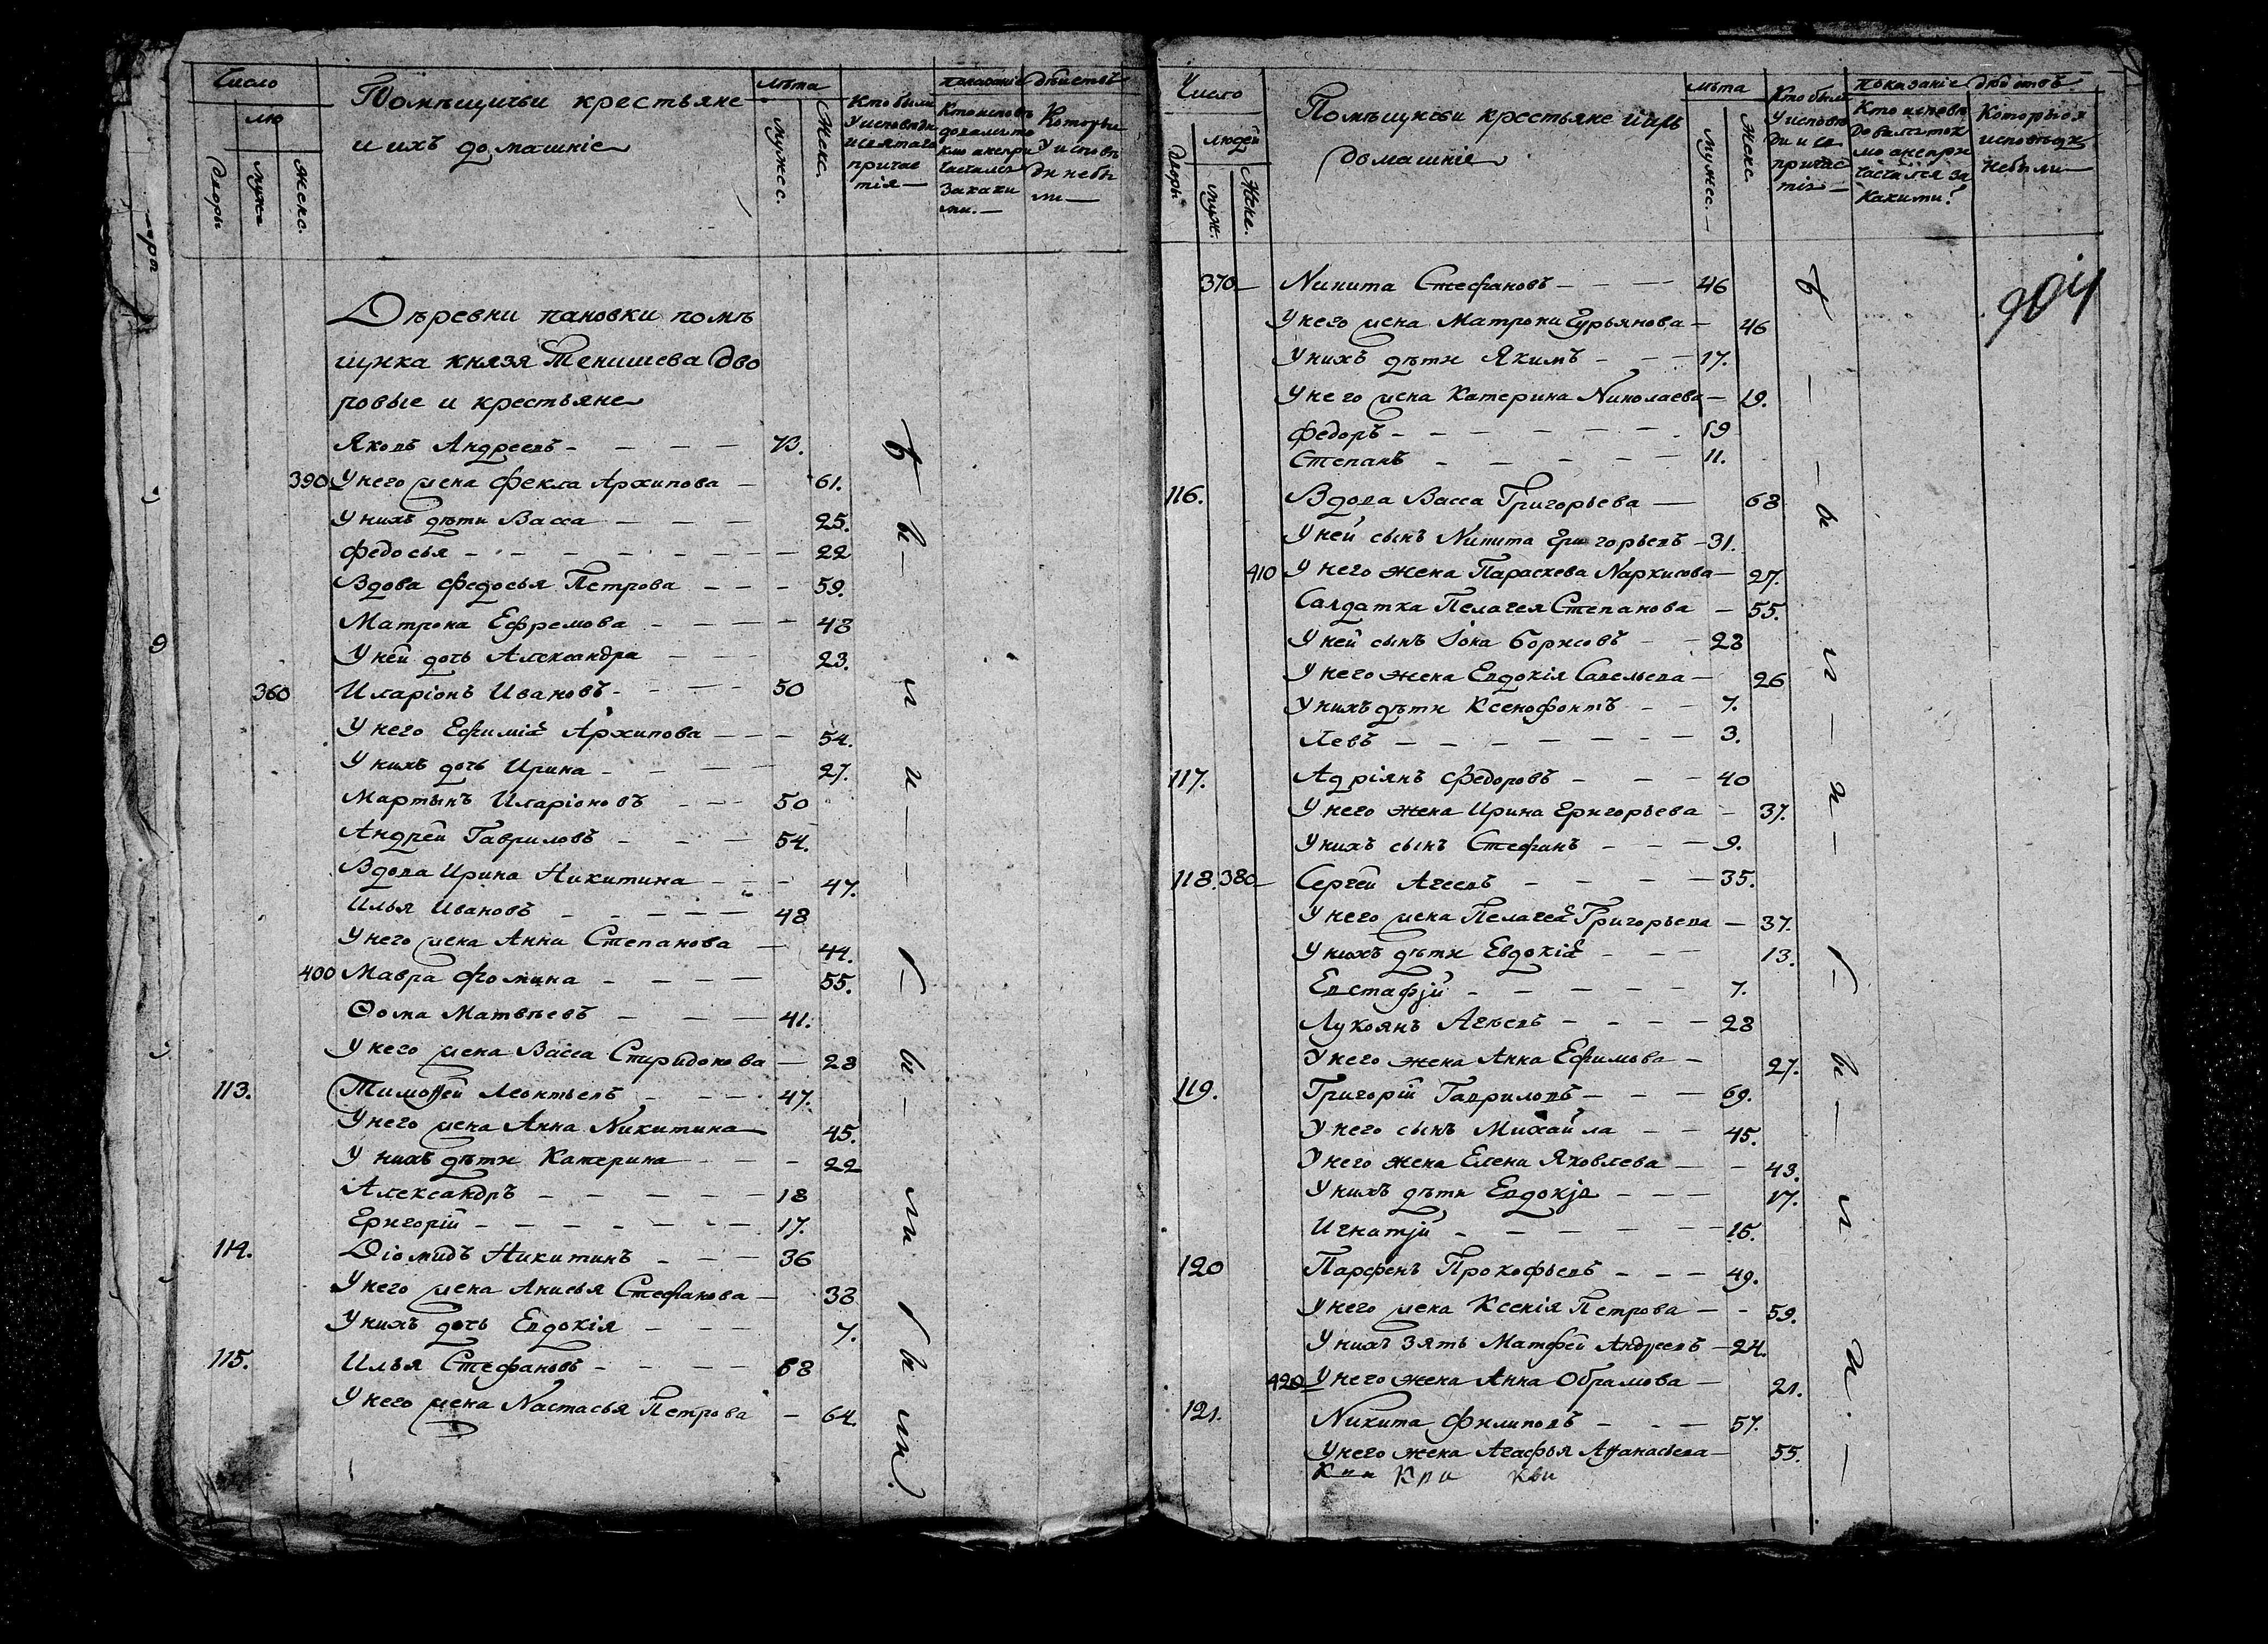 Число
Помѣщичьи крестьяне
и ихъ домашніе
лѣта
Кто были
У исповѣди
и святаго
причас
тія —
показаніе дѣйствъ
Кто исповѣ
довались то
кмо а не при
частились
За каки
ми. —
Которые
У исповѣ
ди не бы
ли —
лю
Дворы
муже
женс.
мужес.
Женс.
Дѣревни пановки помѣ
щика князя Тенишева дво
ровые и крестьяне
Яковъ Андреевъ — 73.
390 У него жена Фекла Архипова — 61.
У нихъ дѣти Васса — 25.
Федосья — 22
Вдова Федосья Петрова — 59.
Матрона Ефремова — 48
У ней дочь Александра — 23.
360 Иларіонъ Ивановъ — 50
У него Ефиміа Архипова — 54.
У нихъ дочь Ирина — 27.
Мартынъ Иларіоновъ — 50
Андрей Гавриловъ — 54.
Вдова Ирина Никитина — 47.
Илья Ивановъ — 48
У него жена Анна Степанова — 44.
400 Мавра Фомина — 55.
Ѳома Матвѣевъ — 41.
У него жена Васса Спиридонова — 28
113. Тимоѳей Леонтьевъ — 47.
У него жена Анна Никитина — 45.
У нихъ дѣти Катерина — 22
Александръ — 18
Григорій — 17.
114. Діомидъ Никитинъ — 36
У него жена Анисья Стефанова — 38
У нихъ дочь Евдокія — 7.
115. Илья Стефановъ — 68
У него жена Настасья Петрова — 64.
были
были
были.
Число
Помѣщичьи крестьяне ііихъ
домашніе
лѣта
Кто были
У исповѣ
ди и св
причас
тія —
показаніе дѣйствъ
Кто исповѣ
довалиток
мо а не при
частился за
какими?
Которыя
исповѣди
небыли —
людей
Дворы
муж.
Жене.
мужес. —
женс.
904
370 — Никита Стефановъ — 46
У него жена Матрона Гурьянова — 46
У нихъ дѣти Якимъ — 17.
У него жена Катерина Николаева — 19.
Федоръ — 19
Степанъ — 11.
116. Вдова Васса Григорьева — 68
У ней сынъ Никита Григорьевъ — 31.
410 У него жена Параскева Наркисова — 27.
Салдатка Пелагея Степанова — 55.
У ней сынъ Іона Борисовъ — 28
У него жена Евдокія Савельева — 26
У нихъ дѣти Ксенофонтъ — 7.
Левъ — 3.
117. Адріянъ Федоровъ — 40
У него жена Ирина Григорьева — 37.
У нихъ сынъ Стефанъ — 9.
118. 380 — Сергей Агеевъ — 35.
У него жена Пелагеа Григорьева — 37.
У нихъ дѣти Евдокіа — 13.
Евстафій — 7.
Лукоянъ Агѣевъ — 28
У него жена Анна Ефимова — 27.
119. Григорій Гавриловъ — 69.
У него сынъ Михайла — 45.
У него жена Елена Яковлева — 43.
У нихъ дѣти Евдокія — 17.
Игнатій — 15.
120 Парфенъ Прокофьевъ — 49.
У него жена Ксенія Петрова — 59.
У нихъ зять Матфей Андреевъ — 24.
420 У него жена Анна Обрамова — 21.
121. Никита Филиповъ — 57.
У него жена Агафья Аѳанасьева — 55.
были
были